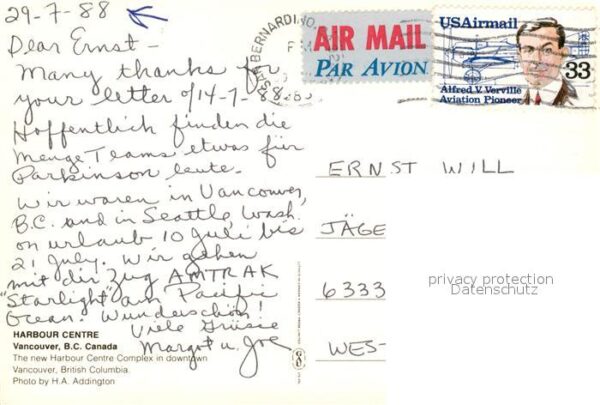 29-7-88
Dear Ernst -
Many thanks for
your letter of 14-7-88
Hoffentlich finden die
menge Teams etwas für
Parkinson leute.
Wir waren in Vancouver,
B.C. and in Seattle, Wash.
on urlaub 10 Juli bis
21 July. Wir gehen
mit dir Zug AMTRAK
"Starlight" am Pacific
Ocean. Wunderschön!
Viele Grüsse
Margot u. Joe
HARBOUR CENTRE
Vancouver, B.C. Canada
The new Harbour Centre Complex in downtown
Vancouver, British Columbia.
Photo by H.A. Addington
SAN BERNARDINO
AIR MAIL
PAR AVION
USAirmail
33
Alfred V. Verville
Aviation Pioneer
ERNST WILL
JÄGE
6333
WES-
privacy protection
Datenschutz